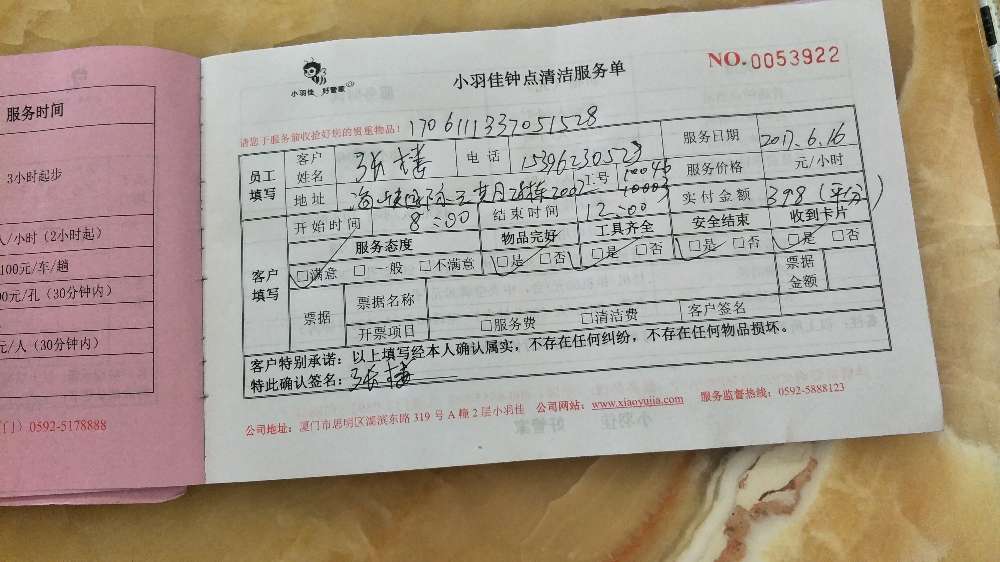 服务时间
3小时起步
人/小时（2小时起）
100元/车/趟
00元/孔（30分钟内）
元/人（30分钟内）
门）0592-5178888
小羽佳 好管家
小羽佳钟点清洁服务单
NO.0053922
请您于服务前收拾好您的贵重物品！1706111337051528
员工填写 客户姓名 张楼 电话 15396230523 服务日期 2017.6.16
地址 工号 10046 10003 服务价格 元/小时
开始时间 8:00 结束时间 12:00 实付金额 398（平分）
客户填写 服务态度 物品完好 工具齐全 安全结束 收到卡片
□满意 □一般 □不满意 □是 □否 □是 □否 □是 □否 □是 □否
票据 票据名称 票据金额
开票项目 □服务费 □清洁费 客户签名
客户特别承诺：以上填写经本人确认属实，不存在任何纠纷，不存在任何物品损坏。
特此确认签名：张楼
公司地址：厦门市思明区湖滨东路319号A幢2层小羽佳 公司网站：www.xiaoyujia.com 服务监督热线：0592-5888123